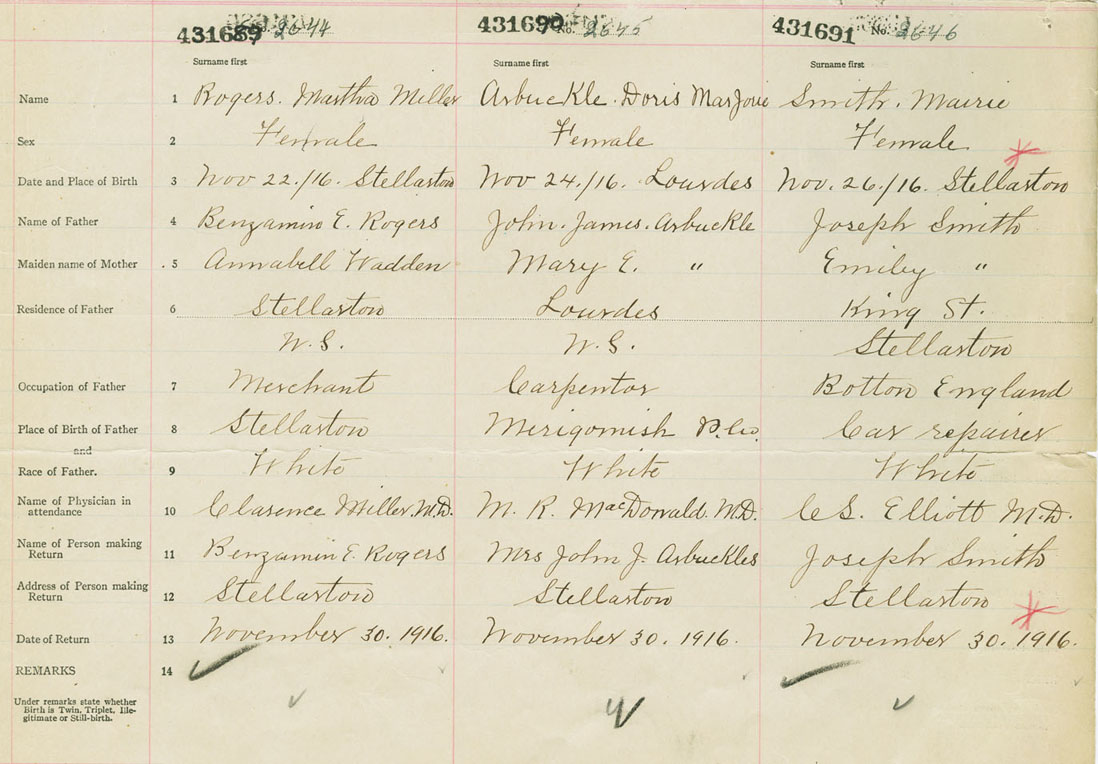 431689 2644 431690 No. 2645 431691 No. 2646
Surname first Surname first Surname first
Name 1 Rogers. Martha Miller Arbuckle. Doris Marjorie Smith. Mairie
Sex 2 Female Female Female
Date and Place of Birth 3 Nov 22./16. Stellarton Nov 24./16. Lourdes Nov. 26./16. Stellarton
Name of Father 4 Benjamin E. Rogers John. James. Arbuckle Joseph Smith
Maiden name of Mother 5 Annabell Wadden Mary E. " Emiley "
Residence of Father 6 Stellarton Lourdes King St.
N.S. N.S. Stellarton
Occupation of Father 7 Merchant Carpentor Botton England
Place of Birth of Father 8 Stellarton Merigomish P. Co. Car repairer
and
Race of Father. 9 White White White
Name of Physician in
attendance 10 Clarence Miller. M.D. M. R. MacDonald. M.D. C S. Elliott M.D.
Name of Person making
Return 11 Benjamin E. Rogers Mrs John J. Arbuckles Joseph Smith
Address of Person making
Return 12 Stellarton Stellarton Stellarton
Date of Return 13 November 30. 1916. November 30. 1916. November 30. 1916.
REMARKS 14
Under remarks state whether
Birth is Twin, Triplet, Ille-
gitimate or Still-birth.